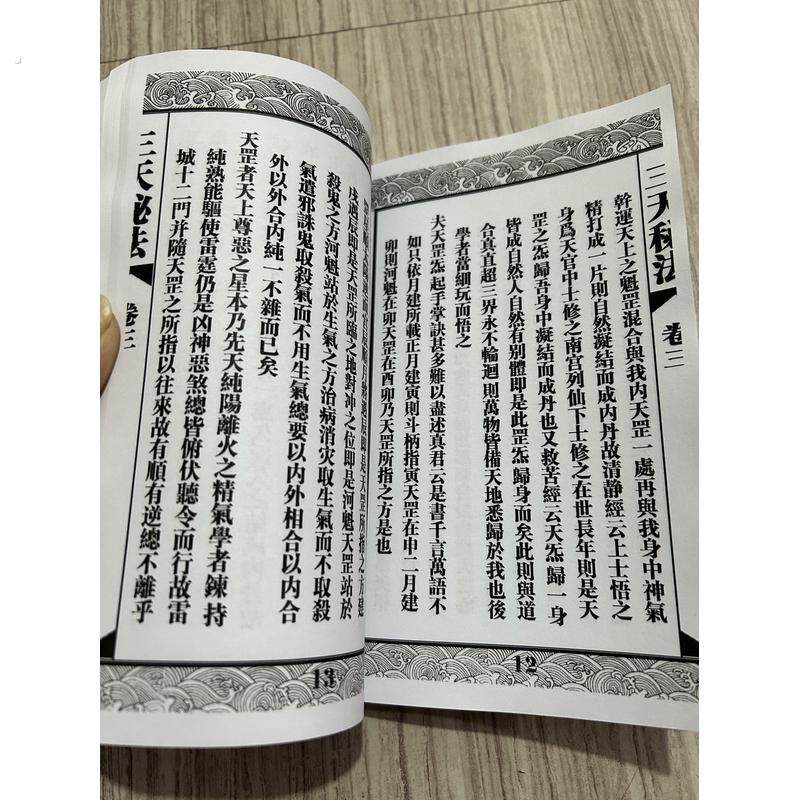 三天秘法 卷三
斡運天上之魁罡混合與我內天罡一處再與我身中神氣
精打成一片則自然凝結而成內丹故清静經云上士悟之
身爲天官中士修之南宮列仙下士修之在世長年則是天
罡之炁歸吾身中凝結而成丹也又救苦經云天炁歸一身
皆成自然人自然有別體即是此罡炁歸身而矣此則與道
合真直超三界永不輪迴則萬物皆備天地悉歸於我也後
學者當細玩而悟之
夫天罡炁起手掌訣甚多難以盡述真君云是書千言萬語不
如只依月建所載正月建寅則斗柄指寅天罡在申二月建
卯則河魁在卯天罡在酉卯乃天罡所指之方是也
12
即是天罡所指之方建
戌遇辰即是天罡所臨之地對冲之位即是河魁天罡站於
殺鬼之方河魁站於生氣之方治病消灾取生氣而不取殺
氣遣邪誅鬼取殺氣而不用生氣總要以内外相合以内合
外以外合内純一不雜而已矣
天罡者天上尊惡之星本乃先天純陽離火之精氣學者鍊持
純熟能驅使雷霆仍是凶神惡煞總皆俯伏聽令而行故雷
城十二門并隨天罡之所指以往來故有順有逆總不離乎
三天秘法 卷三
13